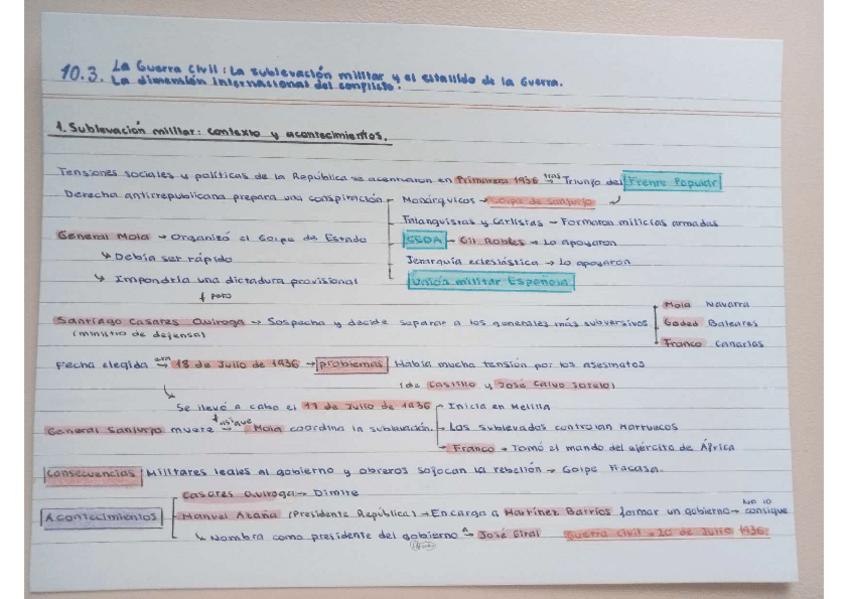 10.3. La Guerra Civil: La sublevación militar y el estallido de la Guerra.
La dimensión internacional del conflicto.
1. Sublevación militar: contexto y acontecimientos.
Tensiones sociales y políticas de la República se acentuaron en Primavera 1936 tras → Triunfo del Frente Popular
Derecha antirrepublicana prepara una conspiración - Monárquicos → Golpe de Sanjurjo
Falanguistas y Carlistas - Formaron milicias armadas
General Mola → Organizó el Golpe de Estado
CEDA - Gil Robles → Lo apoyaron
↳ Debía ser rápido
Jerarquía eclesiástica → Lo apoyaron
↳ Impondría una dictadura provisional
Unión militar Española
↓ pero
Santiago Casares Quiroga → Sospecha y decide separar a los generales más subversivos
(ministro de defensa)
Mola Navarra
Goded Baleares
Franco Canarias
Fecha elegida era → 18 de Julio de 1936 → problemas Había mucha tensión por los asesinatos
(de Castillo y José Calvo Sotelo)
↳ Se llevó a cabo el 17 de Julio de 1936 - Inicia en Melilla
General Sanjurjo muere así que → Mola coordina la sublevación. - Los sublevados controlan Marruecos
- Franco → Tomó el mando del ejército de África
Consecuencias Militares leales al gobierno y obreros sofocan la rebelión → Golpe Fracasa.
Acontecimientos
Casares Quiroga → Dimite
Manuel Azaña (Presidente República) → Encarga a Martínez Barrios formar un gobierno → no lo consigue
↳ Nombra como presidente del gobierno a → José Giral Guerra Civil → 20 de Julio 1936